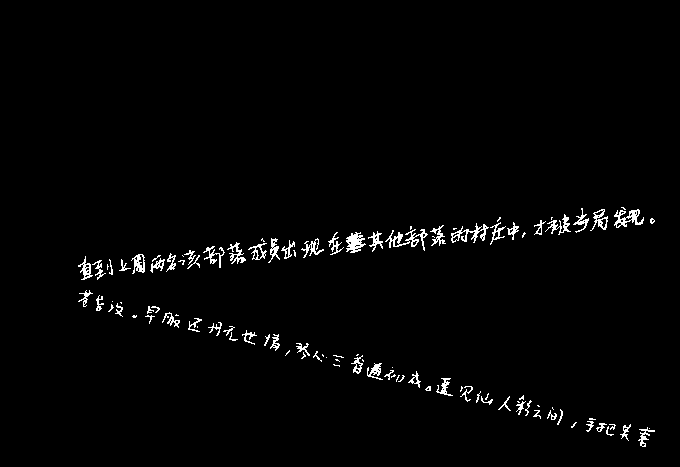 直到上周两名该部落成员出现在其他部落的村庄中,才被当局发现。
苍苔没。早服还丹无世情,琴心三叠道初成。遥见仙人彩云间,手把芙蓉